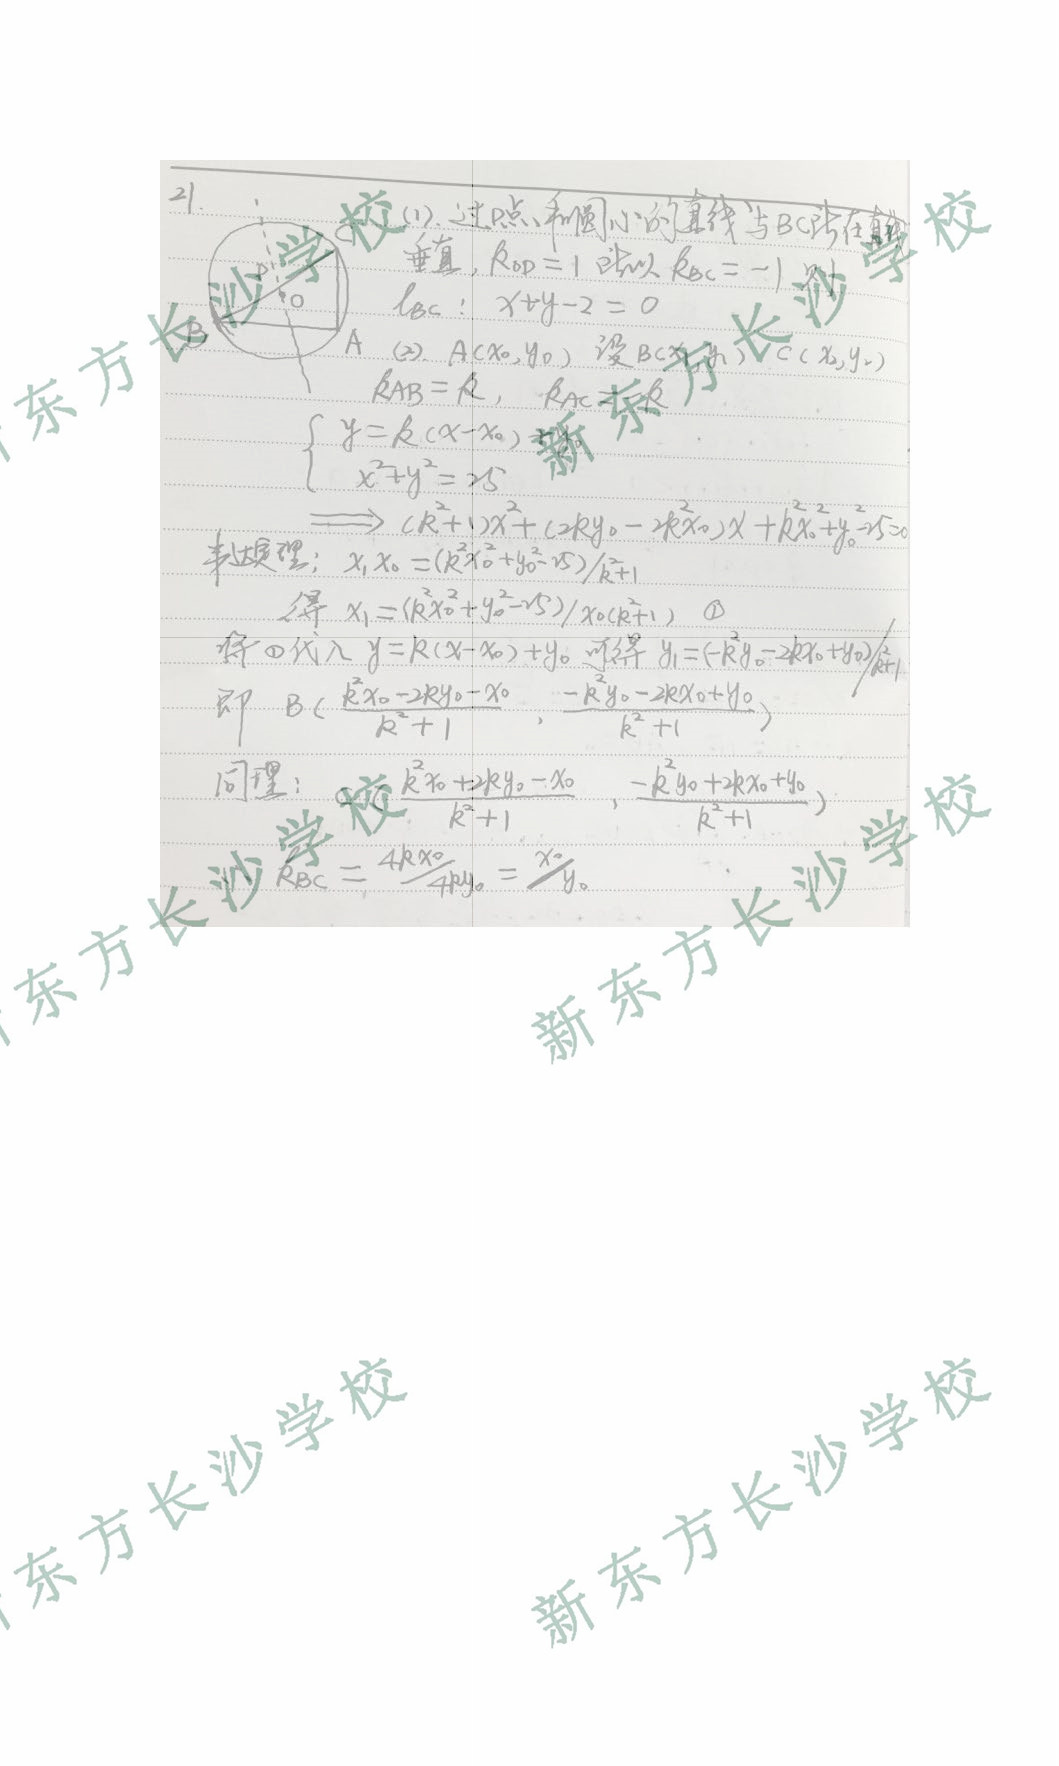 21.
(1). 过D点、和圆心的直线与BC所在直线
垂直, kOD = 1 所以 kBC = -1 则
lBC : x+y-2=0
B O A
(2). A(x₀, y₀) 设B(x₁, y₁) C(x₂, y₂)
kAB = k, kAC = -k
{ y = k(x-x₀)+y₀
x²+y² = 25
⟹ (k²+1)x²+(2ky₀-2k²x₀)x+k²x₀²+y₀²-25=0
韦达定理: x₁x₀ = (k²x₀²+y₀²-25)/k²+1
得 x₁ = (k²x₀²+y₀²-25)/x₀(k²+1) ①
将①代入 y=k(x-x₀)+y₀ 可得 y₁=(-k²y₀-2kx₀+y₀)/k²+1
即 B( k²x₀-2ky₀-x₀ / k²+1 , -k²y₀-2kx₀+y₀ / k²+1 )
同理: C( k²x₀+2ky₀-x₀ / k²+1 , -k²y₀+2kx₀+y₀ / k²+1 )
kBC = 4kx₀/4ky₀ = x₀/y₀
新东方长沙学校
新东方长沙学校
新东方长沙学校
新东方长沙学校
新东方长沙学校
新东方长沙学校